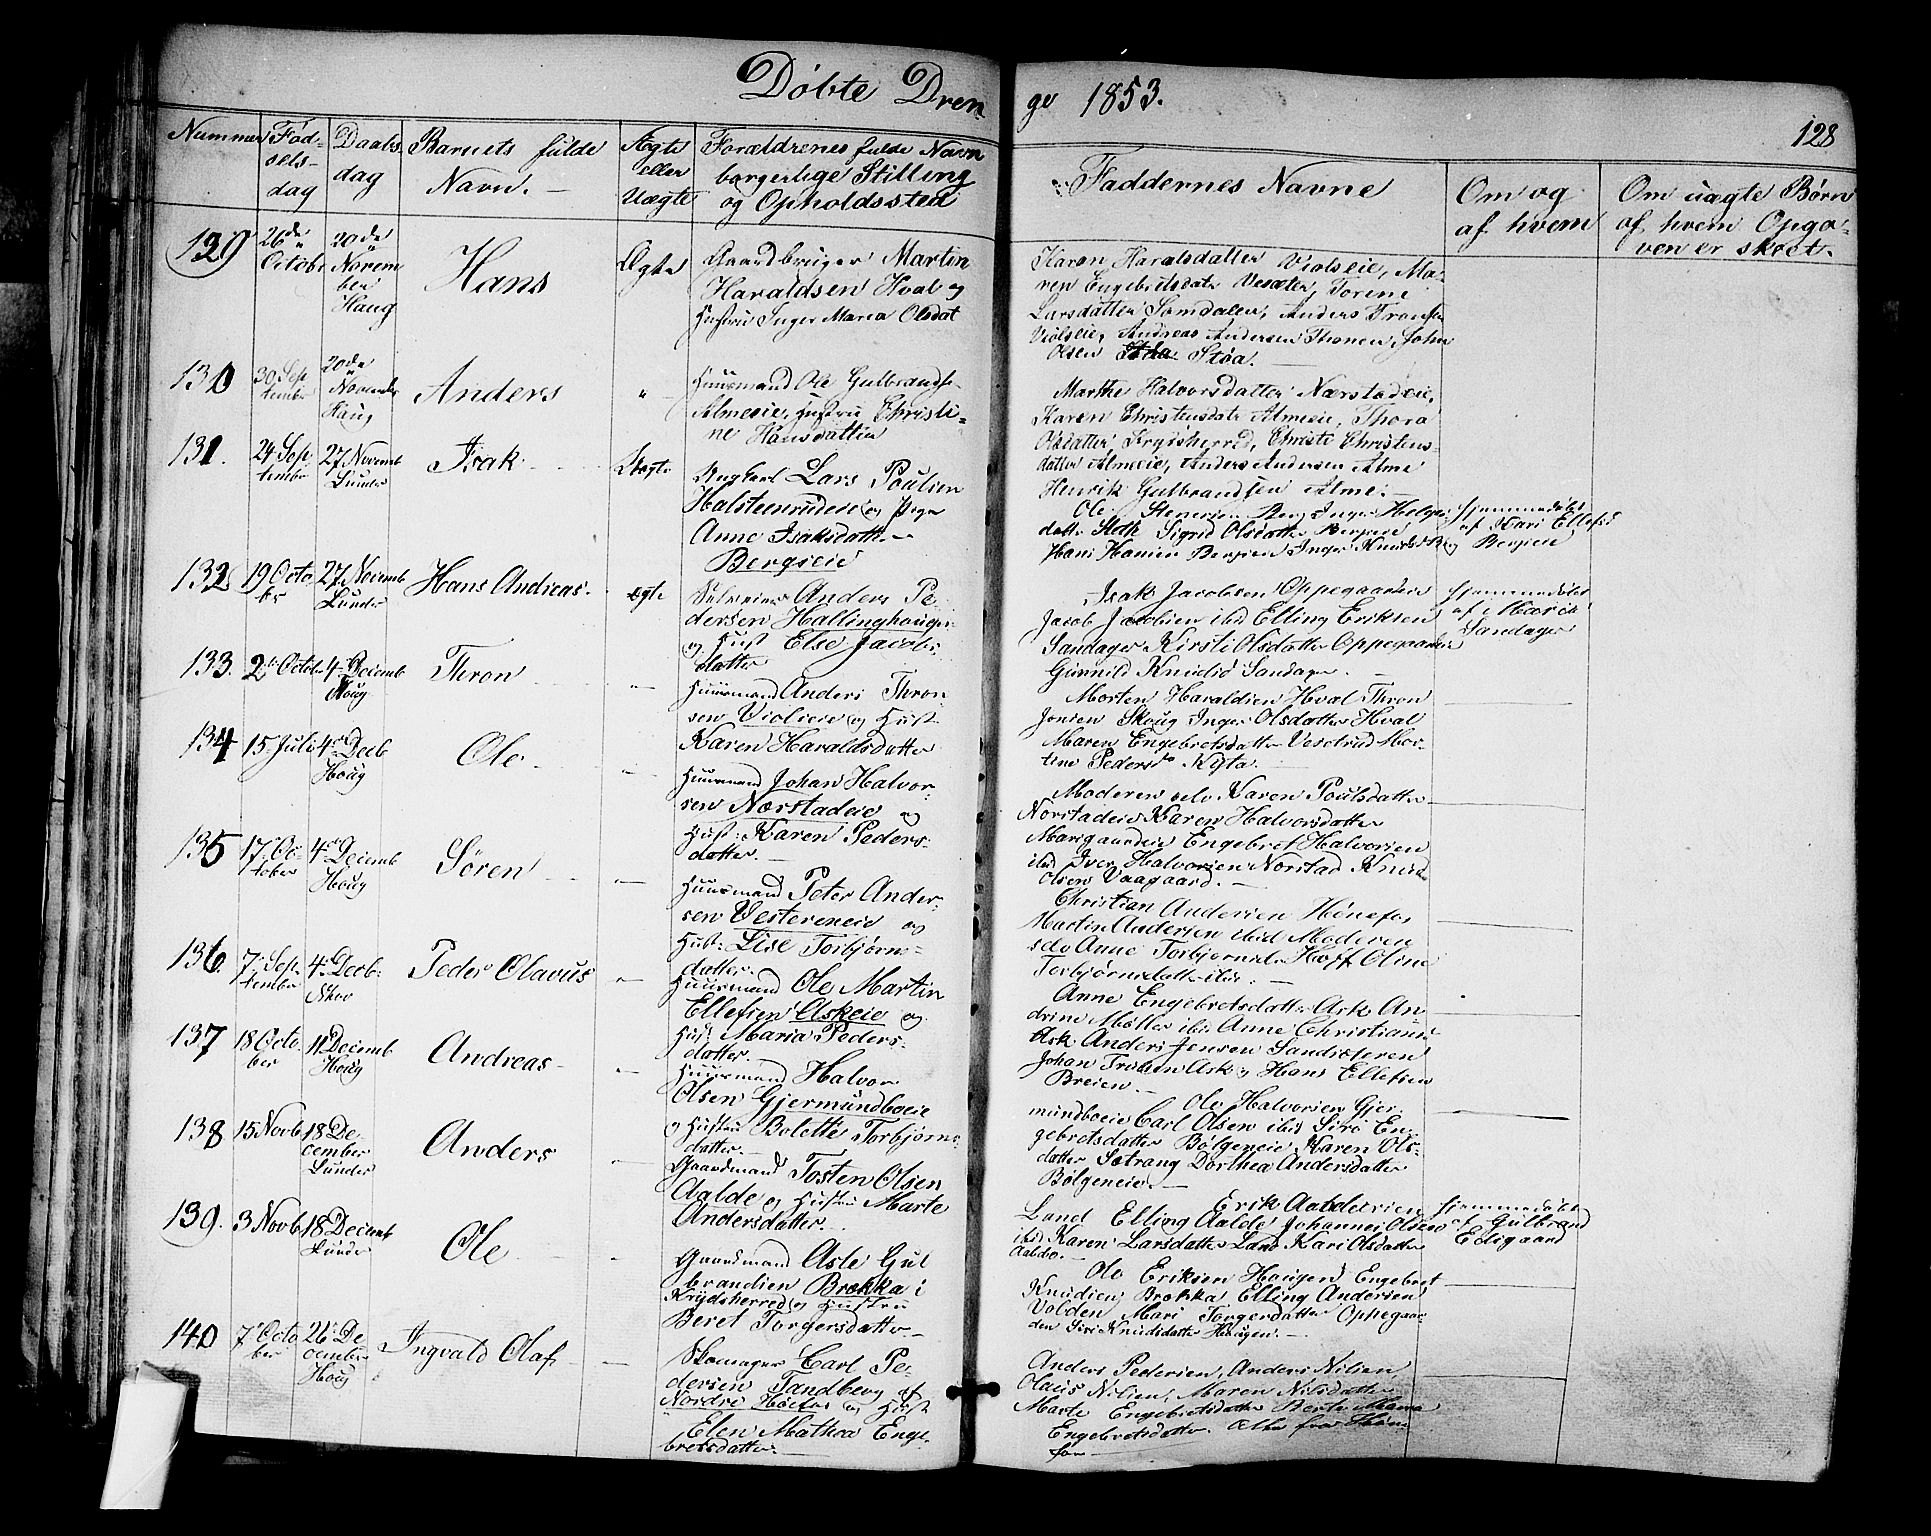 Døbte Dren
ge 1853.
128
Nummer
Fød-
sels-
dag
Daabs-
dag
Barnets fulde
Navn.
Ægte
eller
Uægte
Forældrenes fulde Navn
borgerlige Stilling
og Opholdssted
Faddernes Navne
Om og
af hvem
Om uægte Børn
af hvem Opga-
ven er skeet.
129
26de
October
20de
Novem
ber
Haug
Hans
Ægte
Gaardbruger Martin
Haraldsen Hval og
Hustru Inger Maria Olsdat
Karen Haraldsdatter Violseie, Ma-
ren Engebretsdatr Vesæter, Torene
Larsdatter Somdalen, Anders
Violseie, Andreas Andersen Thonen, John
Olsen Støa.
130
30 Sep
tember
20de
November
Haug
Anders
"
Huusmand Ole Gulbrands-
Almeeie, Hustru Christi-
ne Hansdatter
Marthe Halvorsdatter Nærstadeie,
Karen Christensdatr Almeeie, Thora
Olsdatter Krydsherred, Christi Christens-
datter Almeeie, Anders Andersen Alme
Henrik Gulbrandsen Alme.
131.
24 Sep
tember
27 Novemb
Lunder
Isak
Uægte
Ungkarl Lars Poulsen
Halsteenrudeie og Pige
Anne Isaksdatter
Bergseie
Ole Stenersen Berg Inger Helges
datter Sigrid Olsdatter Bergseie
Hans Hansen Bergseie Inger Knudsd
Hjemmedøbt
af Mari Ellefsd
Bergseie
132
19 Octo
ber
27 Novemb
Lunder
Hans Andreas.
ægte
Selveier Anders Pe
dersen Hallinghaugen
og Hust Else Jacobs
datter
Isak Jacobsen Oppegaarden
Jacob Jacobsen ibid Elling Eriksen
Sandager Kirsti Olsdatter Oppegaarden
Gunnild Knudsd Sandager
Hjemmedøbt
af Marie
Sandager
133.
2de Octob
4 Decemb
Houg
Thron
"
Huusmand Anders Thron
sen Violseie og Hust
Karen Haraldsdatter
Morten Haraldsen Hval Thron
Jonsen Skoug Inger Olsdatter Hval
Maren Engebretsdatter Vesetrud Mor-
tine Pedersdr
134
15 Juli
4 Decb
Houg
Ole
"
Huusmand Johan Halvor-
sen Nærstadeie og
Hust: Karen Peders-
datter.
Moderen selv Karen Poulsdatter
Norstadeie Karen Halvorsdatter
Marigaardeie Engebret Halvorsen
ibid Iver Halvorsen Norstad Knud
Olsen Vaagaard.
135
17 Oc-
tober
4 Decemb
Houg
Sören
"
Huusmand Peter Ander-
sen Vestereneie og
Hust: Lise Torbjørns-
datter.
Christian Andersen Hønefos,
Martin Andersen ibid Moderen
selv Anne Torbjørnsdr Hoff Oline
Torbjørnsdatter ibid.
136.
7 Sep
tember
4 Decb:
Peder Olavus
"
Huusmand Ole Martin
Ellefsen Askeie og
Hust Maria Peders-
datter.
Anne Engebretsdatter Ask An
drine Møller ibid Anne Christians
Ask Anders Jensen Sandsteren
Johan Ask, Hans Ellefsen
Breien.
137
18 Octo
ber
11 Decemb
Houg
Andreas
"
Huusmand Halvor
Olsen Gjermundboeie
og Hustru Bolette Torbjørns-
datter.
Ole Halvorsen Gjer-
mundboeie Carl Olsen ibid Siri En-
gebretsdatter Bølgeneie Karen Ols-
datter Sætrang Dorthea Andersdatter
Bølgeneie.
138
15 Novb
18 De-
cember
Lunder
Anders
"
Gaardmand Tosten Olsen
Aalde og Hustru Marte
Andersdatter
Erik Aaldersen
Land Elling Aalde Johannes Olsen
ibid Karen Larsdatter Land Kari Olsdatter
Aalde.
Hjemmedøbt
af Gulbrand
Edsgaard
139.
3 Novb
18 Decemb
Lunder
Ole
"
Gaardmand Asle Gul
brandsen Brekka i
Krydsherred og Hustru
Beret Torgersdatter
Ole Eriksen Hougen Engebret
Knudsen Brekka Elling Andersen
Volden Mari Torgersdatter Oppegaar
den Siri Knudsdatter Hougen.
140
7 Octo
ber
26 De
cember
Houg
Ingvald Olaf
"
Skomager Carl Pe-
dersen Tandberg af
Nordre Høefos og Hust
Elen Mathea Enge
bretsdatter
Anders Pedersen, Anders Nilsen
Olaus Nilsen, Maren Nilsdatter
Marte Engebretsdatter Berte Maria
Engebretsdatter. Alle fra Høne-
fos